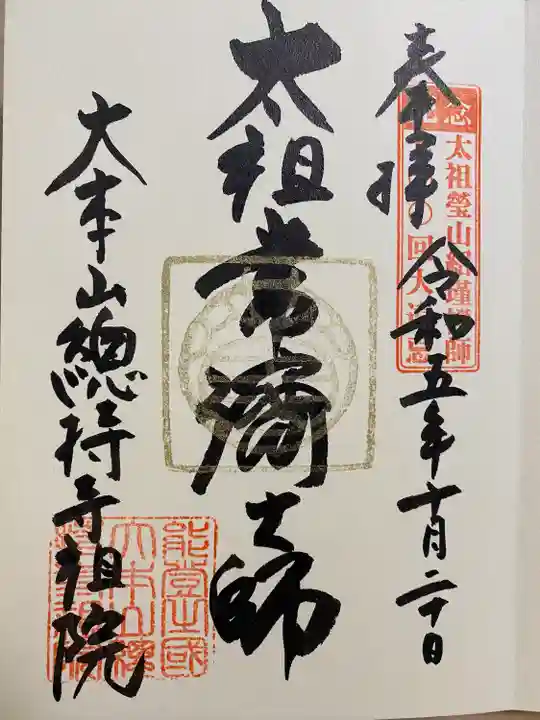 奉拝
令和五年十月二十日
太祖瑩山紹瑾禅師
太祖常濟大師
大本山總持寺祖院
能登國
大本山總